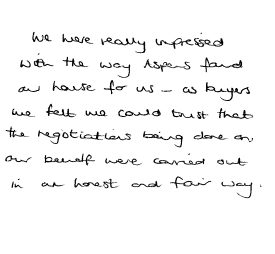 We were really impressed
with the way Aspens found
our house for us - as buyers
we felt we could trust that
the negotiations being done on
our behalf were carried out
in an honest and fair way.